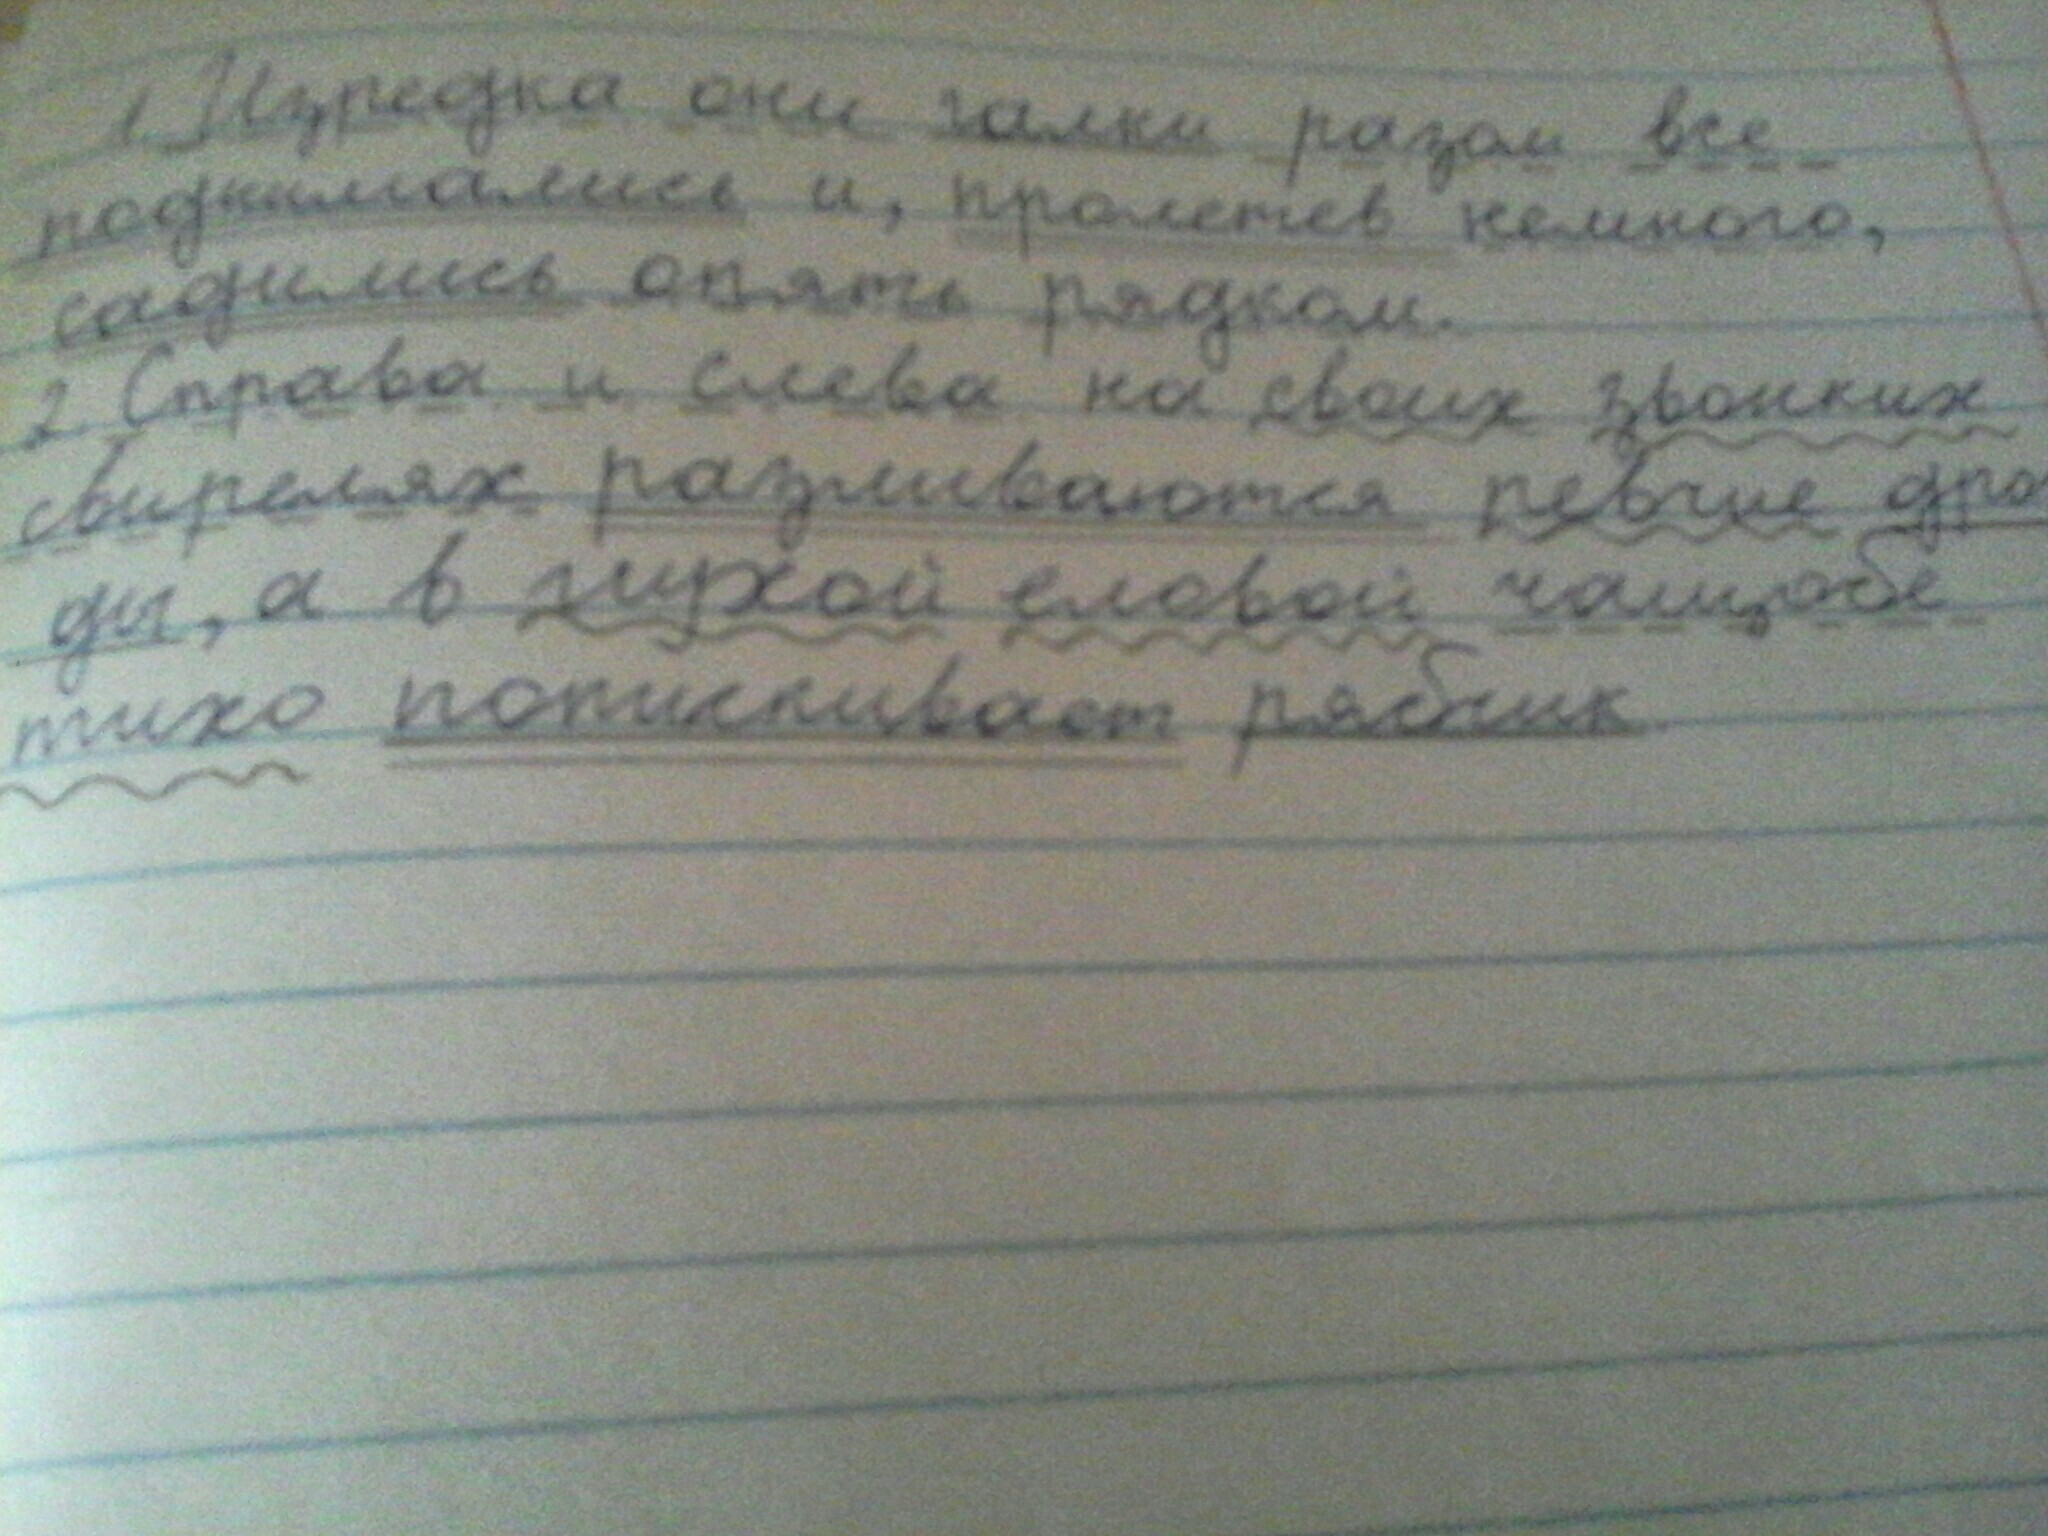 1. Изредка они галки разом все
поднимались и, пролетев немного,
садились опять рядком.
2. Справа и слева на своих звонких
свирелях разливаются певчие дроз
ды, а в глухой еловой чащобе
тихо попискивает рябчик